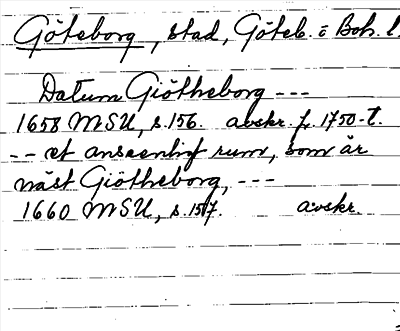 Göteborg, stad, Göteb. o Boh. l.
Datum Giötheborg ---
1658 MSU, s.156. avskr. f. 1750-t.
-- et anseenligt rum, som är
näst Giötheborg, ---
1660 MSU, s.157. avskr.